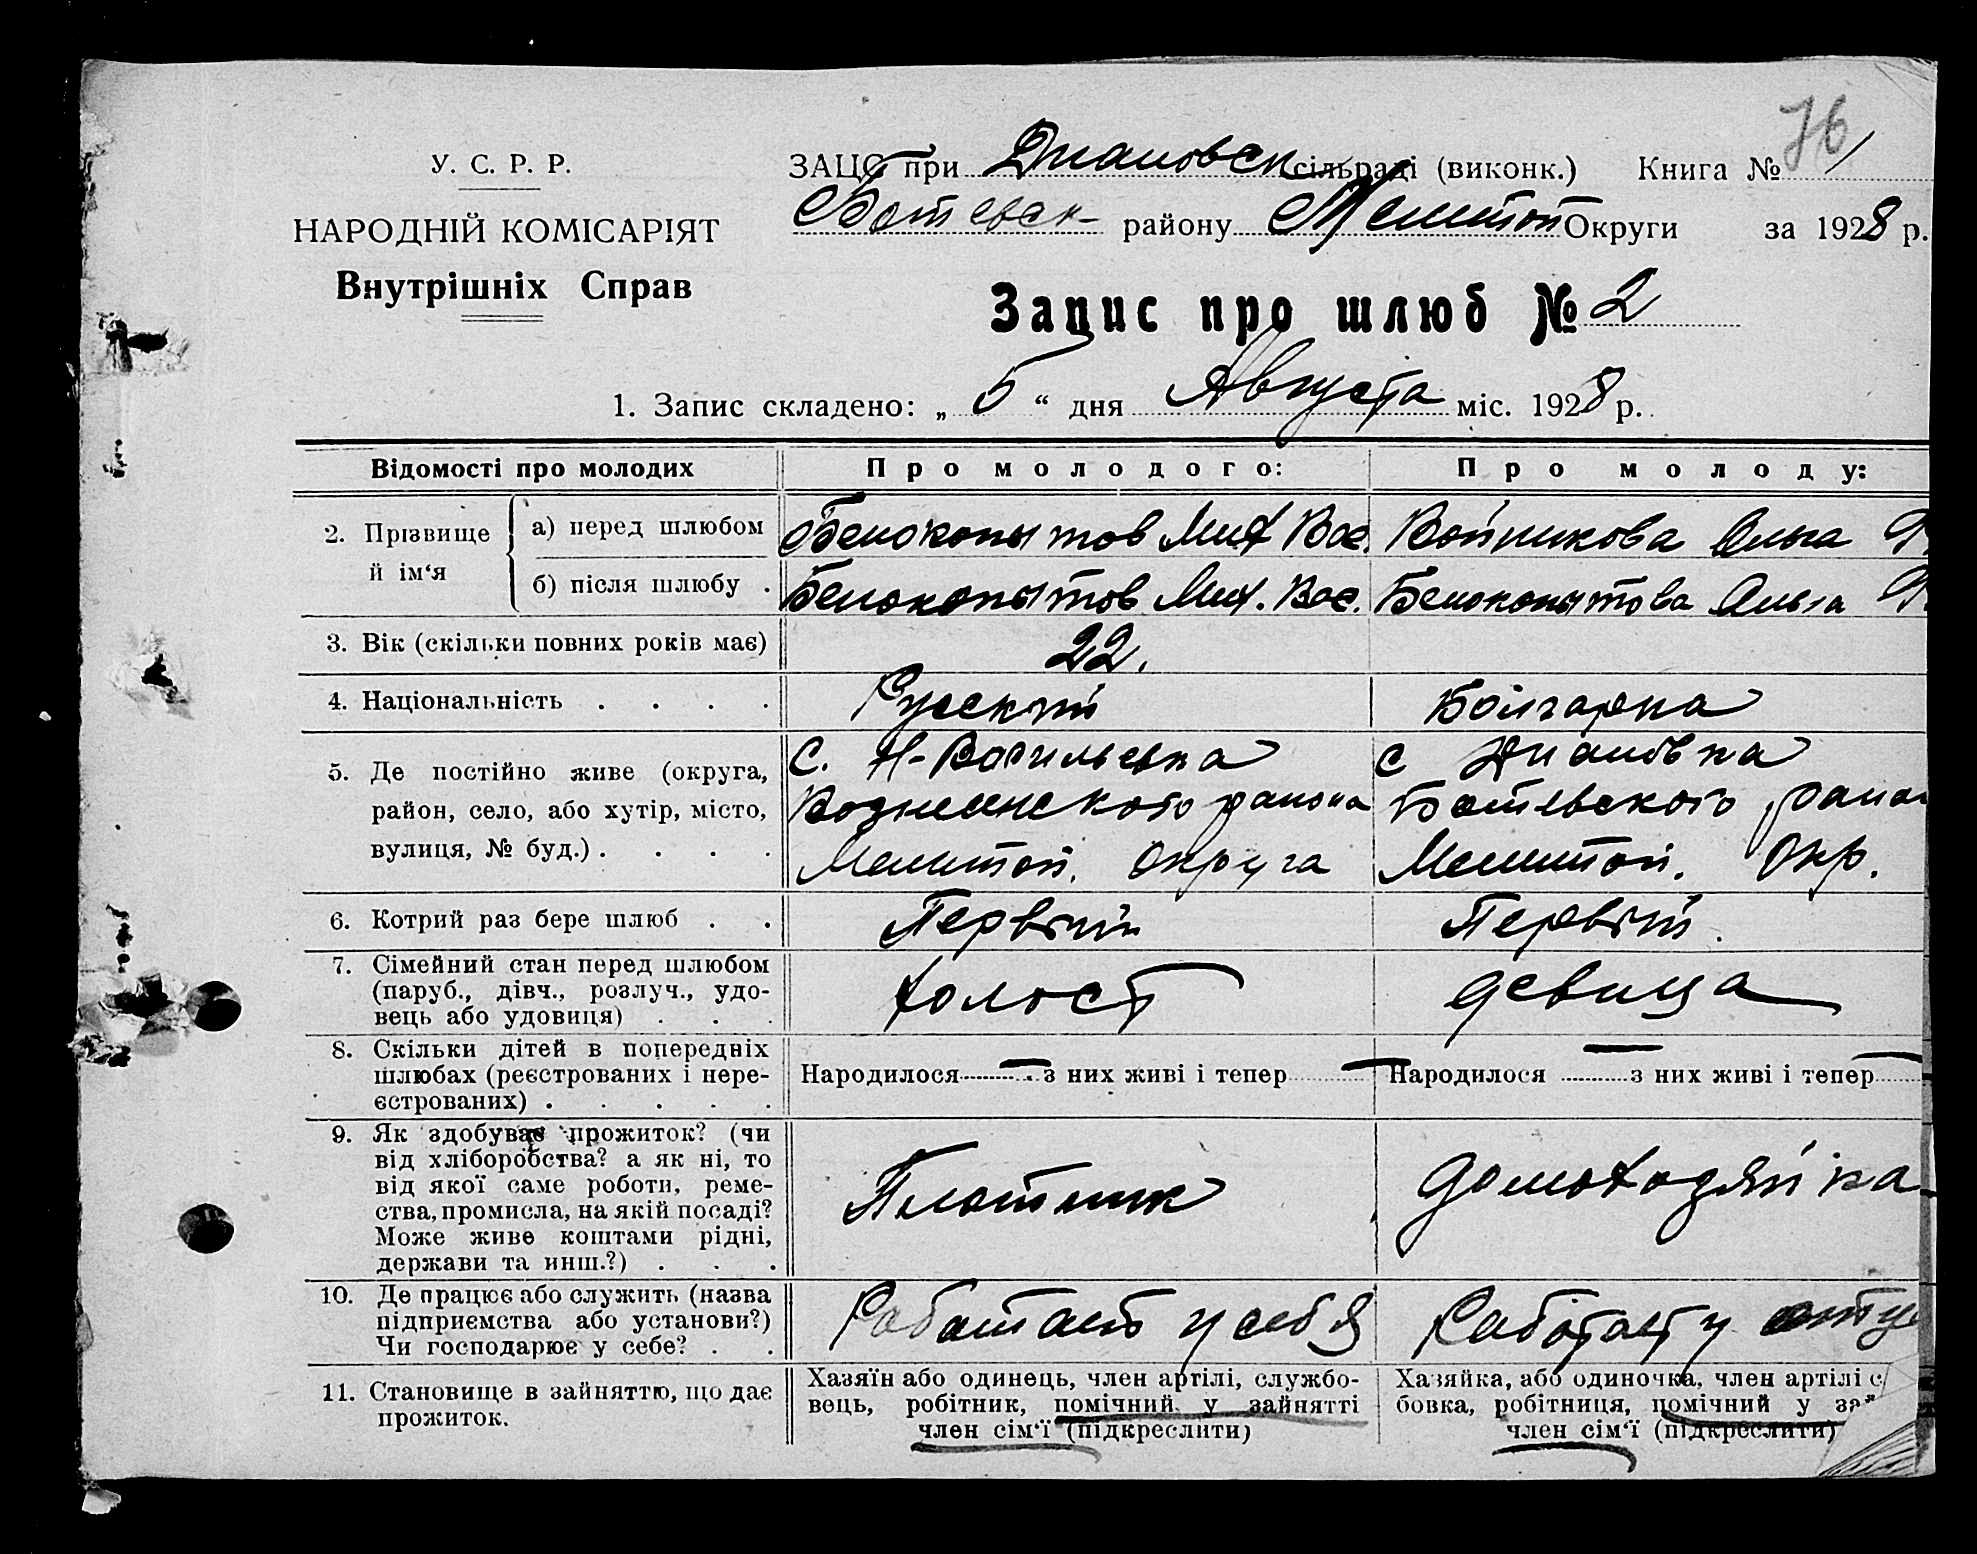 76
У. С. Р. Р.
НАРОДНІЙ КОМІСАРІЯТ
Внутрішніх Справ
ЗАЦС при Диановск сільраді (виконк.) Книга № 1
Ботевск району Мелитоп Округи за 1928 р.
Запис про шлюб № 2
1. Запис складено: „ 5 “ дня Августа міс. 1928 р.
Відомості про молодих Про молодого: Про молоду:
2. Прізвище й ім‘я
а) перед шлюбом Белокопытов Мих Вас. Войникова Ольга
б) після шлюбу . Белокопытов Мих. Вас. Белокопытова Ольга
3. Вік (скільки повних років має) 22.
4. Національність . . . . Русский Болгарка
5. Де постійно живе (округа, С. Н-Васильевка с Диановка
район, село, або хутір, місто, района Ботевского
вулиця, № буд.) . . . . Мелитоп. округа Мелитоп. Окр.
6. Котрий раз бере шлюб . . Первый Первый.
7. Сімейний стан перед шлюбом
(паруб., дівч., розлуч., удо- холост девица
вець або удовиця) . . .
8. Скільки дітей в попередніх
шлюбах (реєстрованих і нере- Народилося — з них живі і тепер — Народилося — з них живі і тепер —
єстрованих) . . . . .
9. Як здобуває прожиток? (чи
від хліборобства? а як ні, то
від якої саме роботи, реме- Плотник домохозяйка
ства, промисла, на якій посаді?
Може живе коштами рідні,
держави та инш.?) . . .
10. Де працює або служить (назва
підприємства або установи?) Работает у себя Работает у
Чи господарює у себе? . .
11. Становище в зайняттю, що дає прожиток.
Хазяїн або одинець, член артілі, службо-
вець, робітник, помічний у зайнятті
член сім‘ї (підкреслити)
Хазяйка, або одиночка, член артілі с
бовка, робітниця, помічний у за
член сім‘ї (підкреслити)